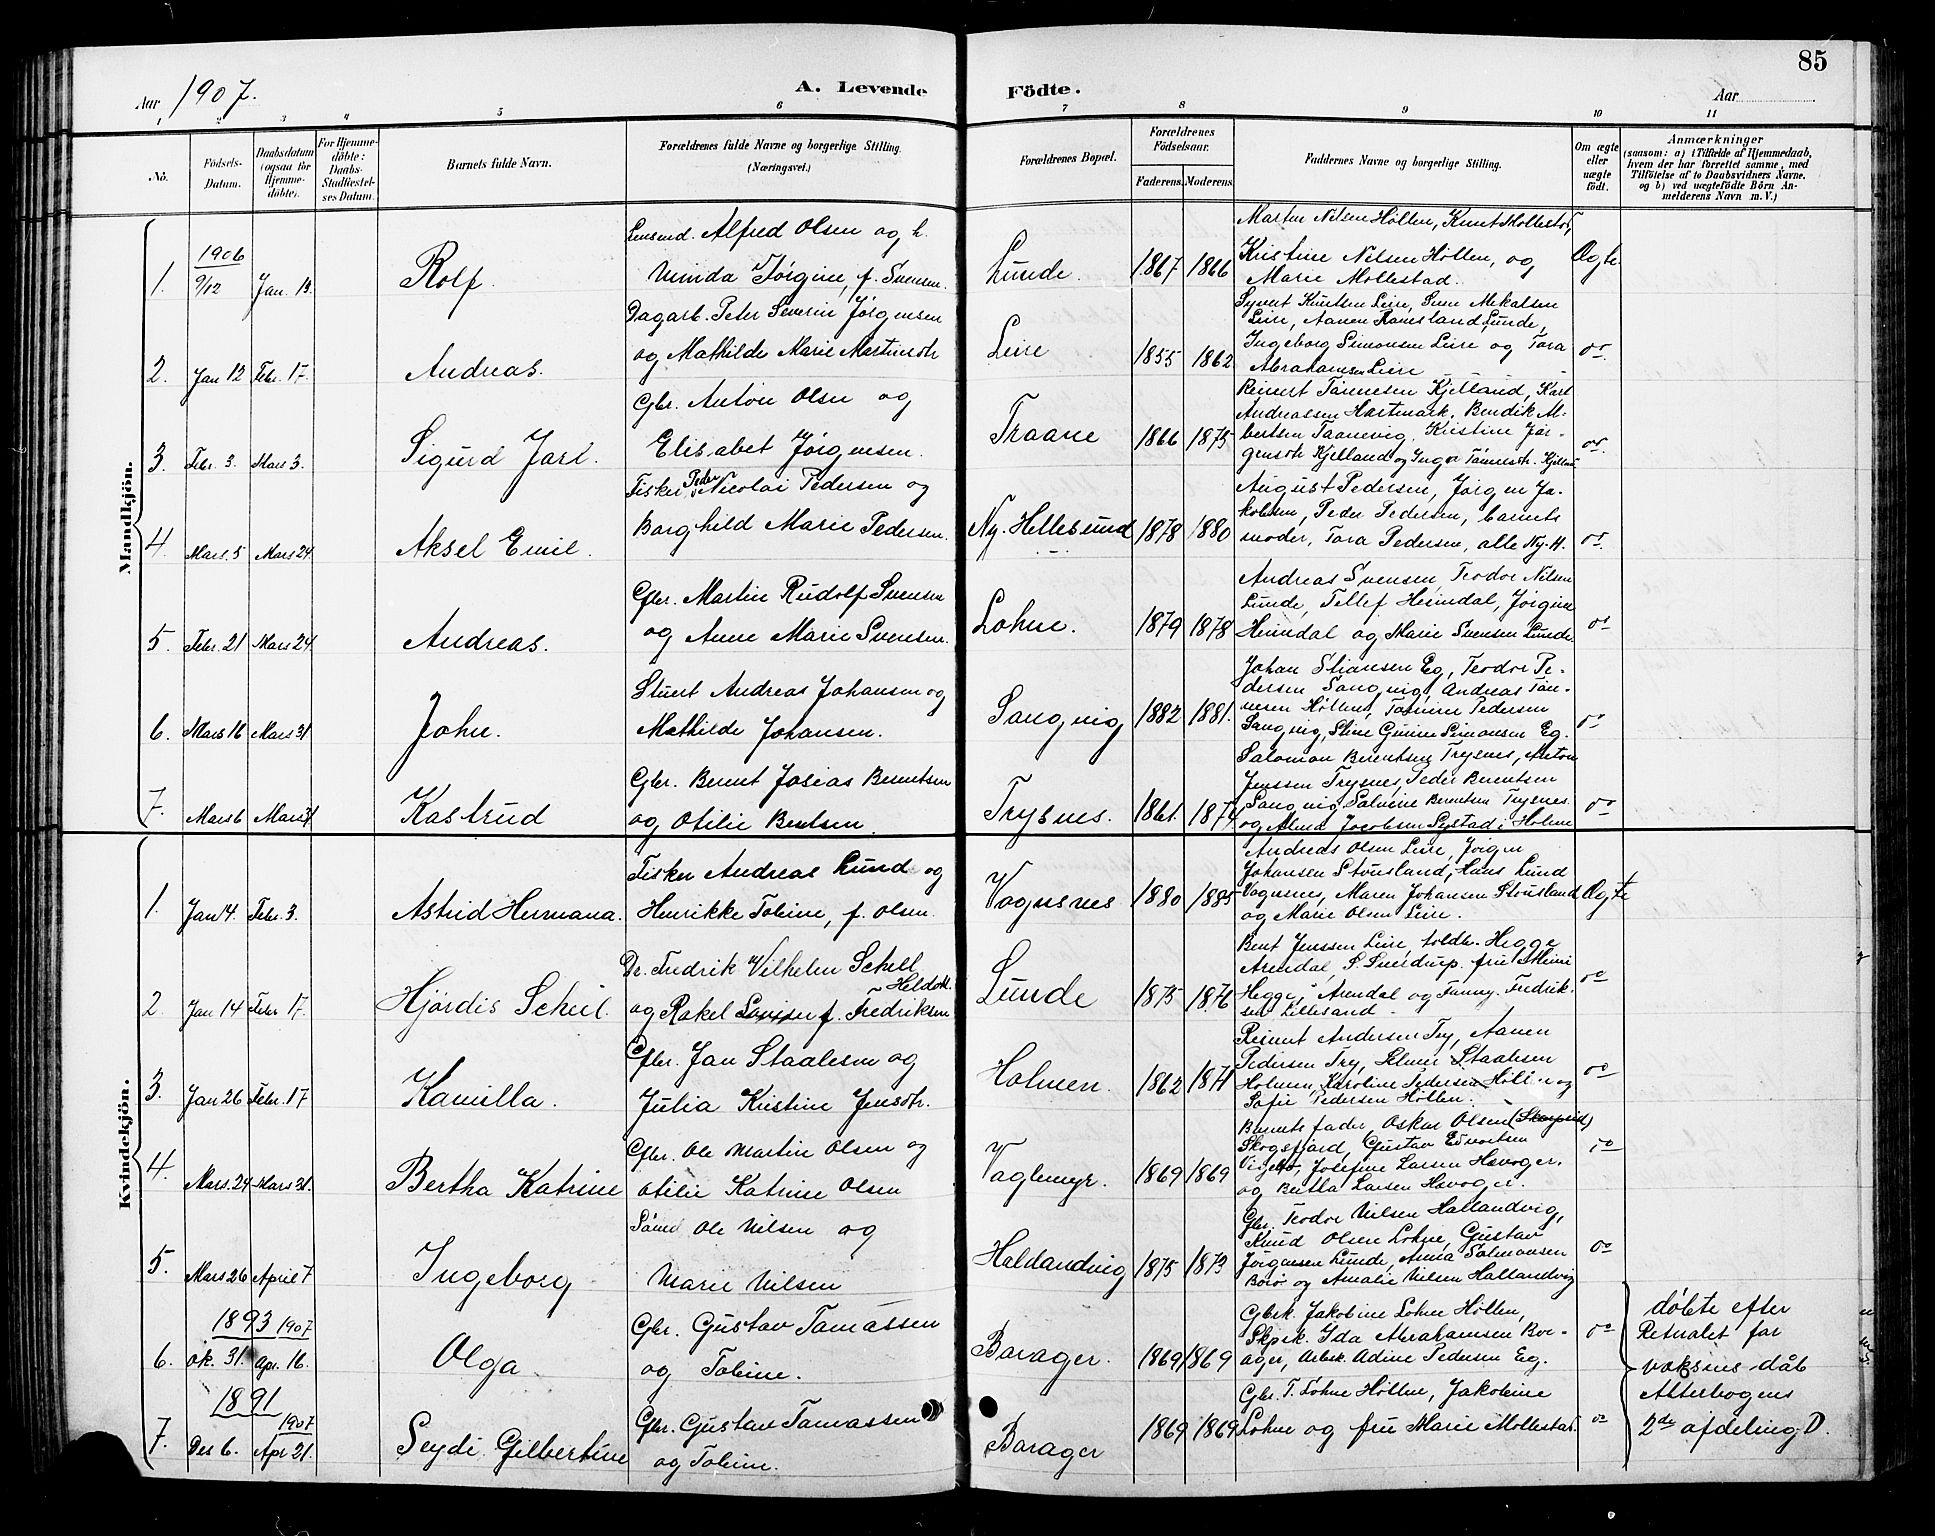 85
Aar 1907.
A. Levende
Födte.
Aar
1 2 3 4 5 6 7 8 9 10 11
No.
Födsels-Datum.
Daabsdatum (ogsaa for Hjemmedöbte).
For Hjemmedöbte: Daabs-Stadfæstelses Datum.
Barnets fulde Navn.
Forældrenes fulde Navne og borgerlige Stilling.
(Næringsvei.)
Forældrenes Bopæl.
Forældrenes Födselsaar.
Faderens. Moderens.
Faddernes Navne og borgerlige Stilling.
Om ægte eller uægte födt.
Anmærkninger
(saasom: a) i Tilfælde af Hjemmedaab,
hvem der har forrettet samme, med
Tilföielse af to Daabsvidners Navne.
og b) ved uægtefödte Börn An-
melderens Navn m. V.)
Mandkjön.
1. 1906 9/12 Jan. 13. Rolf.
Alfred Olsen og h.
Minda Jörgine, f. Svensen.
Lunde. 1867 1866
Martin Nilsen Höllen, Knut Mollestad,
Kristine Nilsen Höllen, og
Marie Mollestad.
Ægte
2. Jan 12 Febr. 17. Andreas.
Dagarb. Peter Severin Jörgensen
og Mathilde Marie Martinsdtr
Leire 1855 1862
Syvert Knutsen Leire, Sven Mekalsen
Leire, Aanen Ramsland Lunde,
Ingeborg Simonsen Leire og Tora
Abrahamsen Leire
do.
3. Febr. 3. Mars 3. Sigurd Jarl.
Gbr. Anton Olsen og
Elisabet Jörgensen.
Traane 1866 1875
Reinert Tönnesen Kjelland, Karl
Andreassen Hartmark, Bendik Al-
bertsen Taanevig. Kristine Jör-
gensdtr Kjelland og Inga Tönnesdtr. Kjelland
do.
4. Mars. 5 Mars 24 Aksel Emil.
Fisker Peder Nicolai Pedersen og
Borghild Marie Pedersen.
Ny-Hellesund 1878 1880
August Pedersen, Jörgen Ja-
kobsen, Peder Pedersen, barnets
moder, Tora Pedersen, alle Ny-H.
do.
5. Febr. 21 Mars 24 Andreas.
Gbr. Martin Rudolf Svensen
og Anne Marie Svensen.
Lohne. 1879 1878
Andreas Svensen, Teodor Nilsen
Lunde, Tellef Heimdal, Jörgine
Heimdal og Marie Svensen Lunde.
do
6. Mars 16 Mars 31 John.
Stuert Andreas Johansen og
Mathilde Johansen.
Sangvig 1882 1881.
Johan Stiansen Eg, Teodor Pe-
dersen Sangvig, Andreas Tön-
nesen Höllen, Tomine Pedersen
Sangvig, Stine Gurine Simonsen Eg.
do
7. Mars 6 Mars 31 Kastrud
Gbr. Bernt Josias Berentsen
og Otilie Bentsen.
Trysnes. 1861. 1874
Salomon Berentsen Trysnes, Anton
Jenssen Trysnes, Peder Berentsen
Sangvig, Salvine Berentsen Trysnes.
og Alma Jacobsen Systad i Holme
do
Kvindekjön.
1. Jan 4. Febr. 3. Astrid Hermana.
Fisker Andreas Lund og
Henrikke Tobine, f. Olsen.
Vogesnes 1880 1885
Andreas Olsen Leire, Jörgen
Johansen Stousland, Hans Lund
Vogesnes, Maren Johansen Stousland
og Marie Olsen Leire.
Ægte
2. Jan 14 Febr 17. Hjördis Scheel.
Dr. Fredrik Vilhelm Scheel
og Rakel Lovise f. Fredriksen
Lunde 1875 1876
Bent Jenssen Leire, toldb. Hegge
Arendal, S. Sverdrup. fru Mimi
Hegge, Arendal og Fanny. Fredrik-
sen Lillesand.
do
3. Jan 26 Febr. 17 Kamilla.
Gbr. Jan Staalesen og
Julia Kristine Jensdtr.
Holmen. 1862 1871
Reinert Andersen Try, Aanen
Pedersen Try, Selmer Staalesen
Holmen, Karoline Pedersen Höllen og
Sofie Pedersen Höllen.
do
4. Mars. 24 Mars 31. Bertha Katrine
Gbr. Ole Martin Olsen og
Otilie Katrine Olsen
Vaglemyr. 1869 1869
Barnets fader, Oskar Olsen
Skogsfjord, Gustav Edvartsen
Vigebö, Josefine Larsen Havoger.
og Bertha Larsen Havoger.
do
5. Mars 26 April 7 Ingeborg
Sömd Ole Nilsen og
Marie Nilsen
Haldandvig 1875 1873
Gbr. Teodor Nilsen Hallandvig,
Knud Olsen Lohne, Gustav
Jörgensen Lunde, Anna Salmonsen
Borö og Amalie Nilsen Hallandvig
do
6. 1893 1907 ok. 31. Apr. 16. Olga
Gbr. Gustav Tomassen
og Tobine.
Borager. 1869 1869
Gbrk. Jakobine Lohne Höllen,
Skprk. Ida Abrahamsen Bor-
ager, Arbk. Adine Pedersen Eg.
do
7. 1891 1907 Des 6. Apr 21. Seydi Gilbertine
Gbr. Gustav Tomassen
og Tobine.
Borager 1869 1869
Gbr. T. Lohne Höllen, Jakobine
Lohne og fru Marie Mollestad.
do
döbte efter
Retualet for
voksnes dåb
Alterbogens
2den afdeling D.